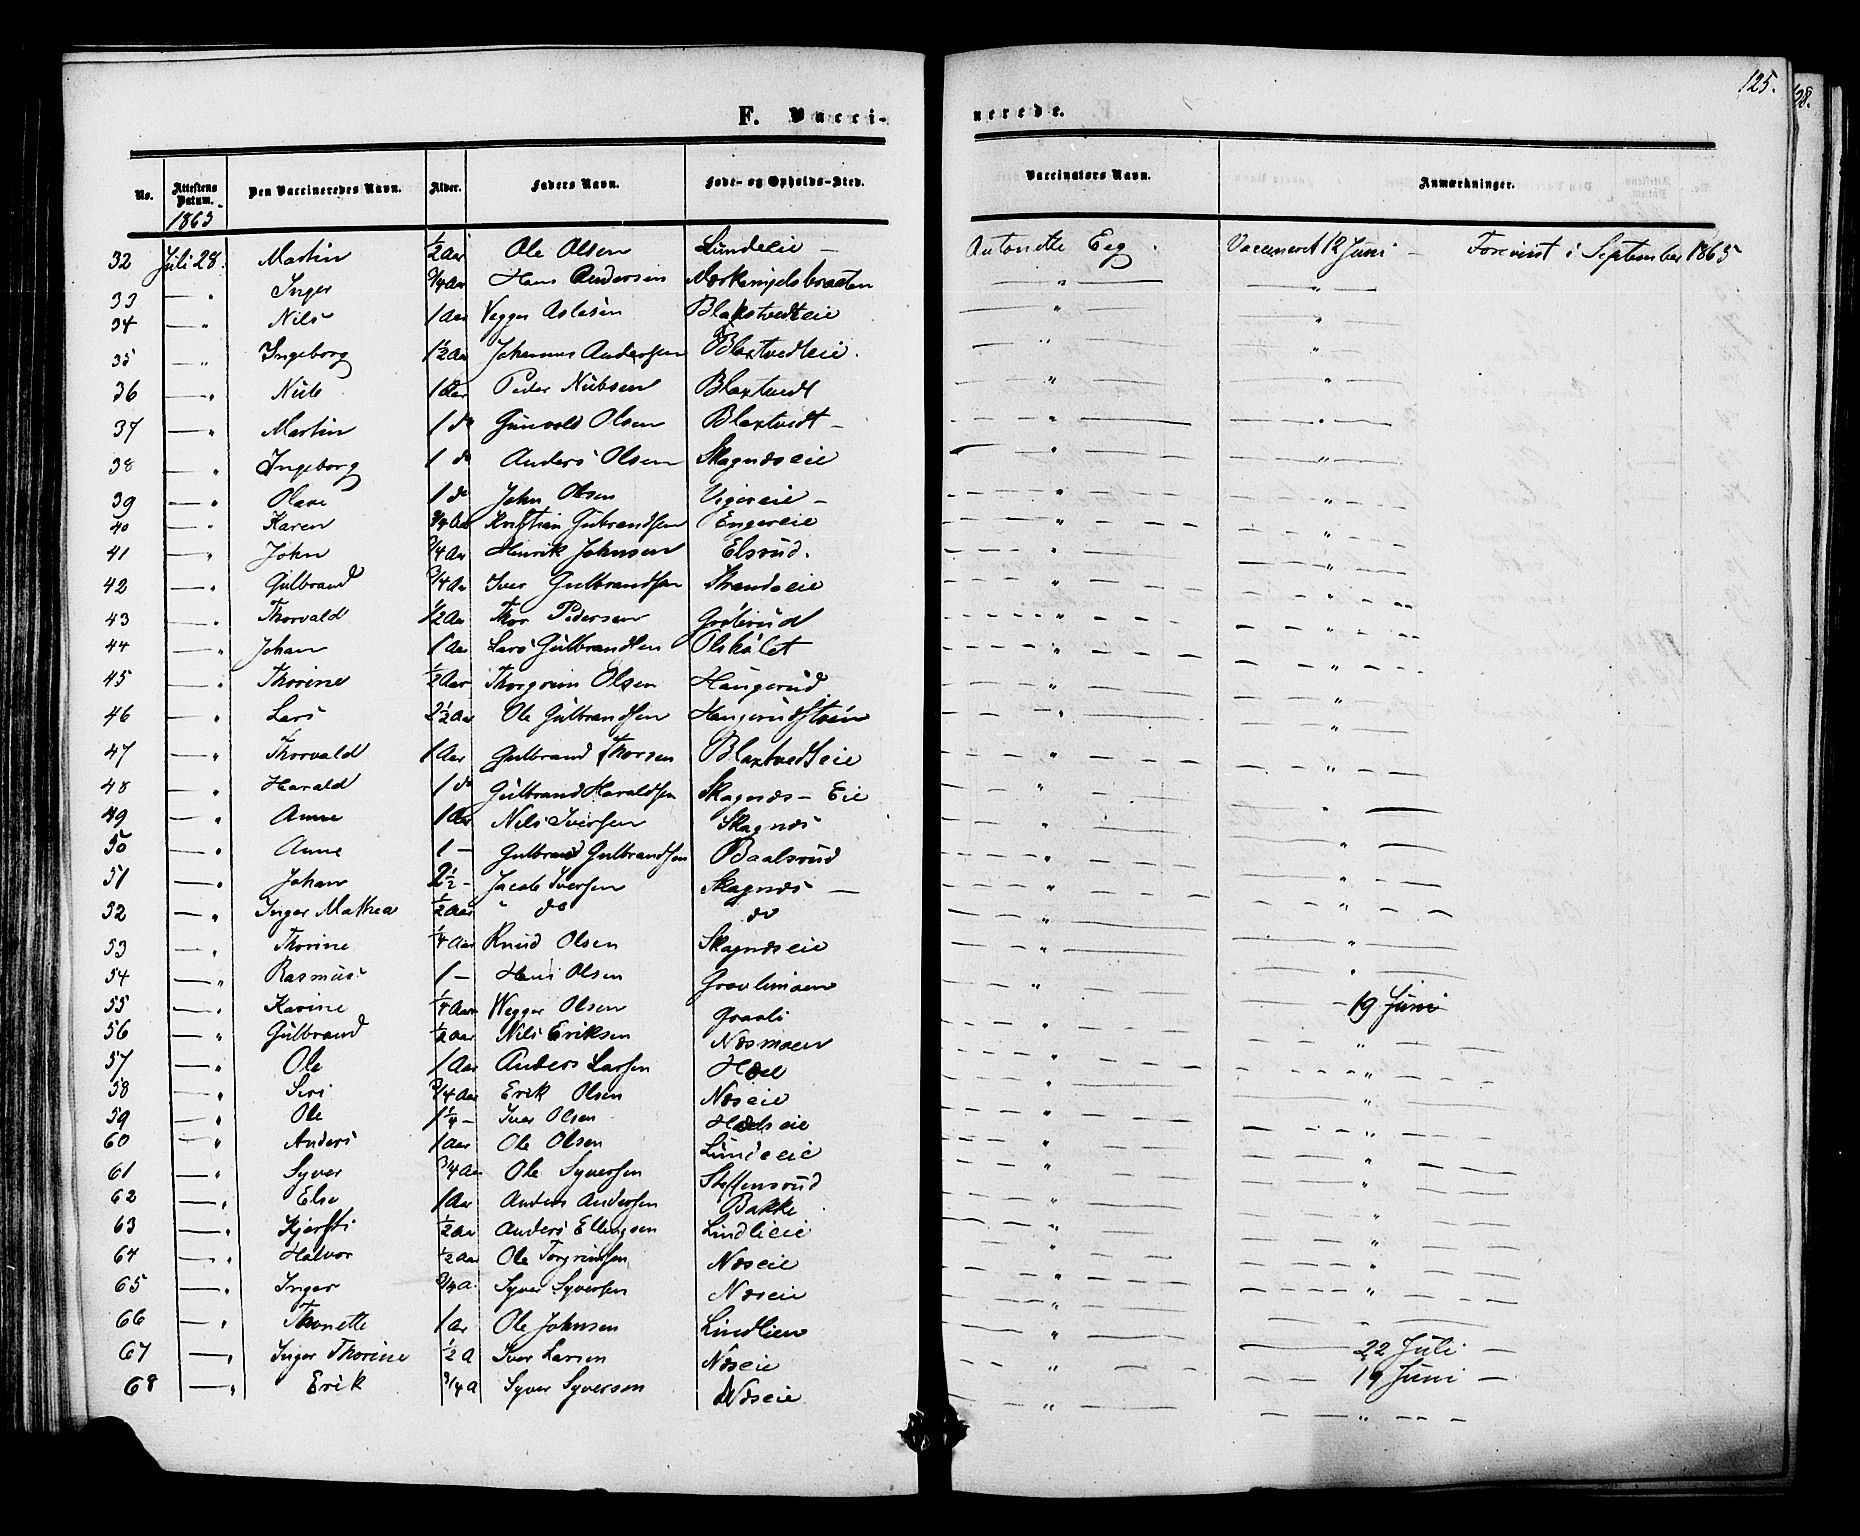 125.
128.
F. Vacci-
nerede.
No. Attestens Datum. Den Vaccineredes Navn. Alder. Faders Navn. Føde- og Opholds-Sted. Vaccinators Navn. Anmærkninger.
1863
32 Juli 28. Martin ½ Aar Ole Olsen Lundeeie – Antonette Eeg. Vaccineret 12 Juni – Foreviist i September 1865
33 — " Inger ¾ Aar Hans Andersen — " — — " —
34 — " Nils 1 Aar Vegger Aslesen Blakstvedteie — " — — " —
35 — " Ingeborg 1½ Aar Johannes Andersen Blaxtvedteie. — " — — " —
36 — " Niels 1 Aar Peder Nielsen Blaxtvedt — " — — " —
37 — " Martin 1 do Gunvold Olsen Blaxtvedt – — " — — " —
38 — " Ingeborg 1 do Anders Olsen Skagnæseie — " — — " —
39 — " Olave 1 do John Olsen Vigereie – — " — — " —
40 — " Karen ¾ Aar Kristian Gulbrandsen Engereie — " — — " —
41 — " John ¾ Aar Henrik Johnsen Elsrud. — " — — " —
42 — " Gulbrand ¾ Aar Iver Gulbrandsen Strandeie — " — — " —
43 — " Thorvald ½ Aar Thor Pedersen — " — — " —
44 — " Johan 1 Aar Lars Gulbrandsen Olshølet — " — — " —
45 — " Thorine ½ Aar Thorgrim Olsen Haugerud — " — — " —
46 — " Lars 2½ Aar Ole Gulbrandsen Haugerudstøen — " — — " —
47 — " Thorvald 1 Aar Gulbrand Thorsen Blaxtvedteie — " — — " —
48 — " Harald 1 do Gulbrand Haraldsen Skagnæs – Eie — " — — " —
49 — " Anne 1 Aar Nils Iversen Skagnæs — " — — " —
50 — " Anne 1 – Gulbrand Gulbrandsen Baalsrud — " — — " —
51 — " Johan 2½ – Jacob Iversen Skagnæs — — " — — " —
32 — " Inger Mathea ½ Aar " do do — " — — " —
53 — " Thorine ¼ Aar Knud Olsen Skagnæseie — " — — " —
54 — " Rasmus 1 – Hans Olsen Gravlimoen — " — — " —
55 — " Karine ¼ Aar Vegger Olsen Gravli — " — — 19 Juni
56 — " Gulbrand ½ Aar Nils Eriksen Næsmoen — " — — " —
57 — " Ole 1 Aar Anders Larsen — " — — " —
58 — " Siri ¾ Aar Erik Olsen Næseie — " — — " —
59 — " Ole 1¼ – Iver Olsen — " — — " —
60 — " Anders 1 Aar Ole Olsen Lundeeie — " — — " —
61 — " Syver ¾ Aar Ole Syversen Steffensrud — " — — " —
62 — " Else 1 Aar Anders Andersen Bakke — " — — " —
63 — " Kjersti ½ Aar Anders Ellingsen Lindlieie — " — — " —
64 — " Halvor ½ Aar Ole Torgrimsen Næseie — " — — " —
65 — " Inger ¾ A. Syver Syversen Næseie — " — — " —
66 — " Thonette 1 Ar Ole Johnsen Lindlien — " — — " —
67 — " Inger Thorine ½ A Iver Larsen Næseie — " — — 22 Juli —
68 — " Erik ¾ A Syver Syversen Næseie. — " — — 19 Juni —
— " —